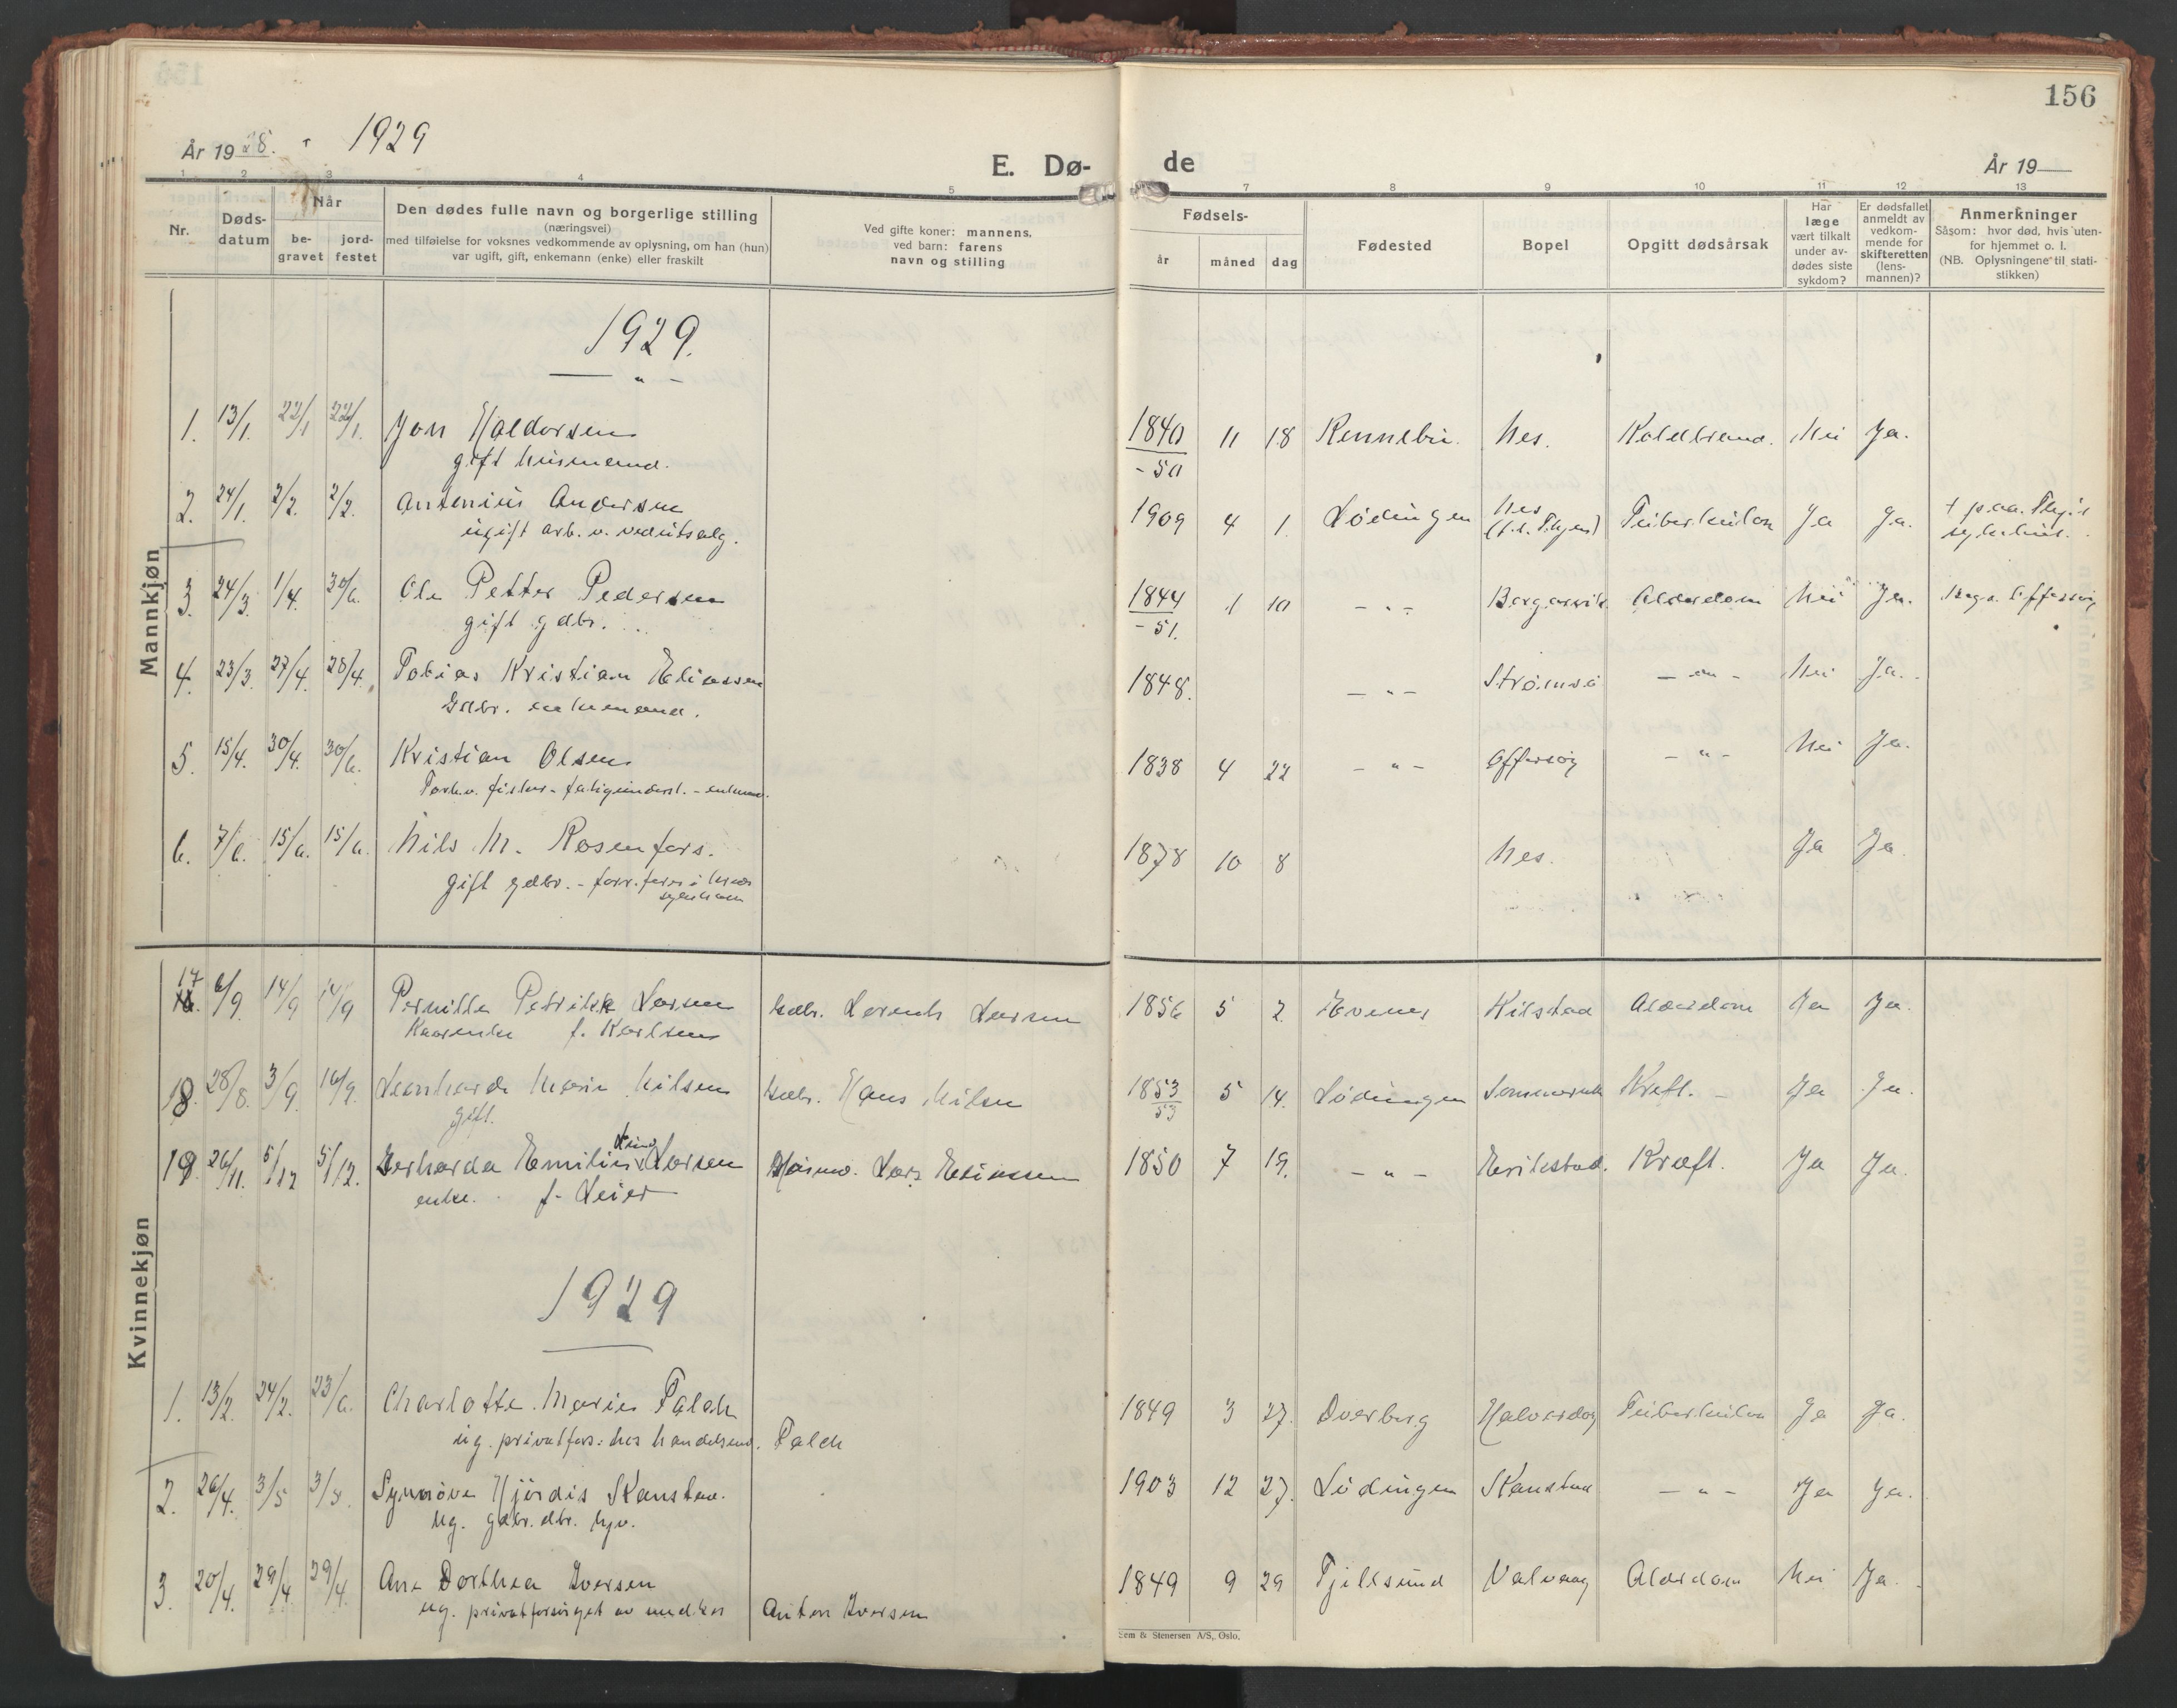 156
År 1928. 1929
E. Dø- de
År 19
1 2 3 4 5 7 8 9 10 11 12 13
Nr.
Døds-
datum
Når
be-
gravet
jord-
festet
Den dødes fulle navn og borgerlige stilling
(næringsvei)
med tilføielse for voksnes vedkommende av oplysning, om han (hun)
var ugift, gift, enkemann (enke) eller fraskilt
Ved gifte koner: mannens,
ved barn: farens
navn og stilling
Fødsels-
år måned dag
Fødested
Bopel
Opgitt dødsårsak
Har
læge
vært tilkalt
under av-
dødes siste
sykdom?
Er dødsfallet
anmeldt av
vedkom-
mende for
skifteretten
(lens-
mannen)?
Anmerkninger
Såsom: hvor død, hvis uten-
for hjemmet o. l.
(NB. Oplysningene til stati-
stikken)
Mannkjøn
1929.
1. 13/1. 22/1 22/1. Jon Haldorsen 1840 11 18 Rennebu. Nes. Koldbrand. Nei Ja.
gift husmand. - 50
2. 24/1. 2/2. 2/2. Antonius Andersen 1909 4 1. Lødingen Nes Tuberkulose Ja Ja.
ugift arb. v. vedutsalg.
3. 24/3. 1/4. 30/6. Ole Petter Pedersen 1844 1 10 - " - Bergsvik Alderdom Nei Ja.
gift gdbr. - 51.
4. 23/3. 27/4. 28/4. Tobias Kristian Eliassen 1848. - " - Strømsø - " - Nei Ja.
Gdbr. enkemand.
5. 15/4. 30/4. 30/6. Kristian Olsen 1838 4 22 - " - Offersøy - " - Nei Ja.
Forhv. fisker - fatigunderst. - enkem.
6. 7/6. 15/6. 15/6. Nils M. Rosenfors. 1878 10 8 Nes. Ja Ja.
gift gdbr. - forr.
Kvinnekjøn
17 6/9. 14/9 14/9 Pernille Petrikke Larsen Gdbr. Lorents Larsen 1856 5 2 Evenes Kilstad Alderdom Ja Ja.
Kaarenke f. Karlsen
18. 28/8. 3/9. 16/9. Leonharde Marie Nilsen Gdbr. Hans Nilsen 1853 5 14. Lødingen Kreft. - Ja Ja.
gift. 53
19. 26/11. 5/12 5/12. Gerharda Emilie Larsen Lars Eliassen 1850 7 19. - " - Erikstad. Kreft. Ja Ja.
enke. f. Leier
1929
1. 13/2. 24/2. 23/6. Charlotte Marie Falch 1849 3 27. Dverberg Halvardøy Tuberkulose Ja Ja.
ug. privatfors. hos handelsm. Falch
2. 26/4. 3/5 3/5. Synnøve Hjørdis Kanstad. 1903 12 27. Lødingen Kanstad - " - Ja Ja.
ug. gdbr. dtr. hjv.
3. 20/4. 29/4 29/4. Ane Dorthea Iversen 1849 9 29 Tjeldsund Valvaag Alderdom Nei Ja.
ug. privatforsørget av Anton Iversen
Sem & Stenersen A/S, Oslo.